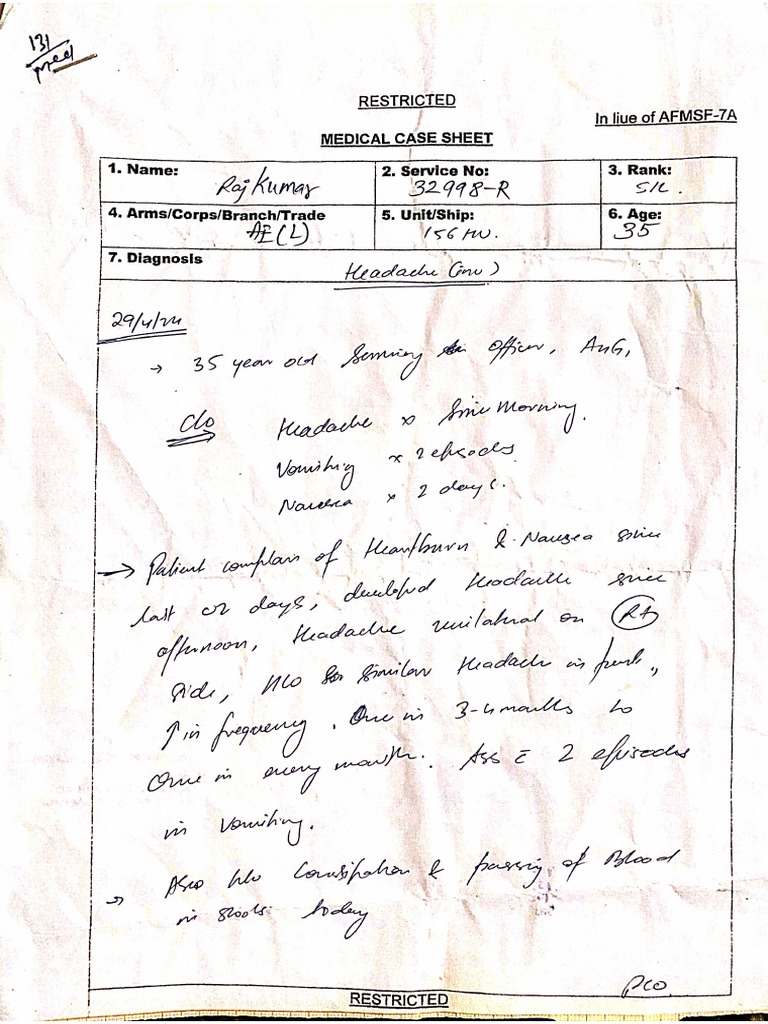 131
med
RESTRICTED
In liue of AFMSF-7A
MEDICAL CASE SHEET
1. Name: Raj Kumar
2. Service No: 32998-R
3. Rank: S/L.
4. Arms/Corps/Branch/Trade AE(L)
5. Unit/Ship: 156 HU.
6. Age: 35
7. Diagnosis Headache (inv)
29/4/24
→ 35 year old Serving Officer,
C/o Headache x Since Morning.
Vomiting x 2 episodes
Nausea x 2 days.
→ Patient complain of Heartburn & Nausea since
last 02 days, developed Headache since
afternoon, Headache unilateral on Rt
side, H/o similar Headache in past,
↑ in frequency. Once in 3-4 months to
Once in every month. Ass c̄ 2 episodes
in Vomiting.
→ Also H/o Constipation & passing of Blood
in stools today
PTO
RESTRICTED